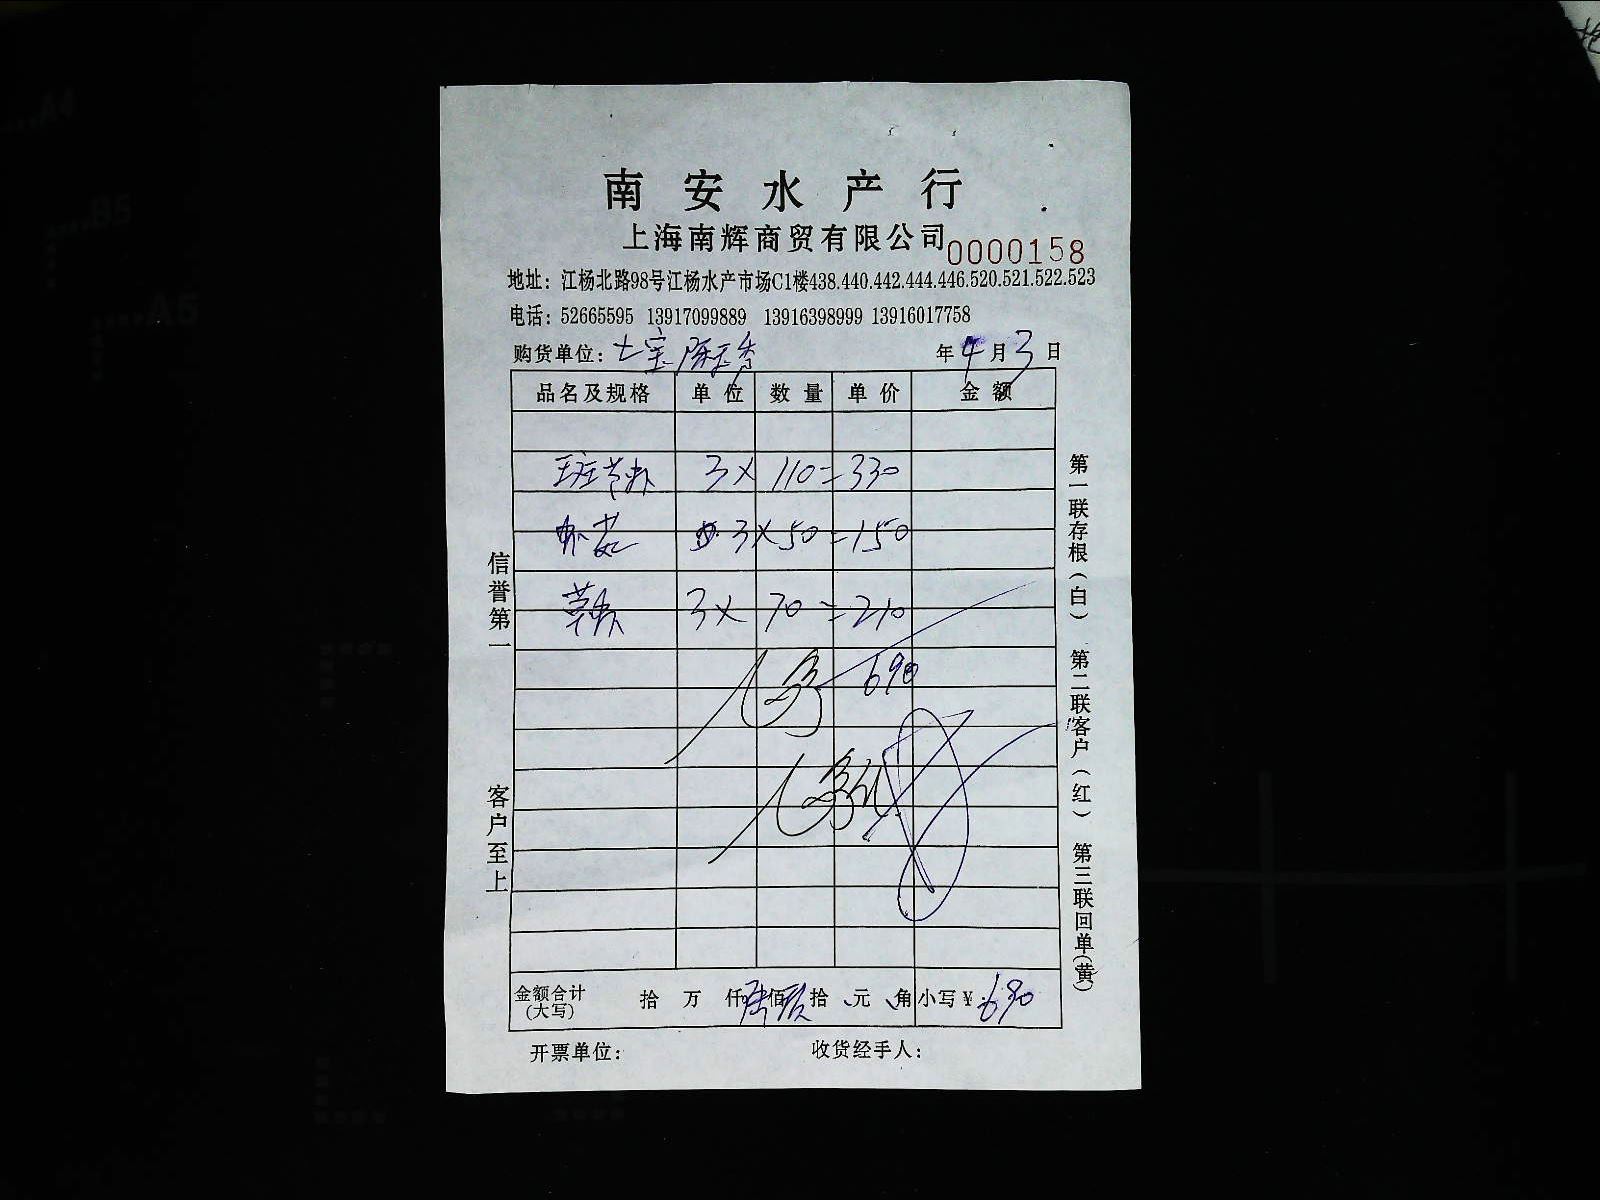 南安水产行
上海南辉商贸有限公司 0000158
地址：江杨北路98号江杨水产市场C1楼438.440.442.444.446.520.521.522.523
电话：52665595 13917099889 13916398999 13916017758
购货单位：七宝 年 4 月 3 日
品名及规格 单位 数量 单价 金额
班节 3 × 110 = 330
3 × 50 = 150
3 × 70 = 210
690
金额合计(大写) 拾 万 仟 陆 佰 玖 拾 元 角 小写￥：690
开票单位： 收货经手人：
信誉第一
客户至上
第一联存根(白) 第二联客户(红) 第三联回单(黄)
A4
B5
A5